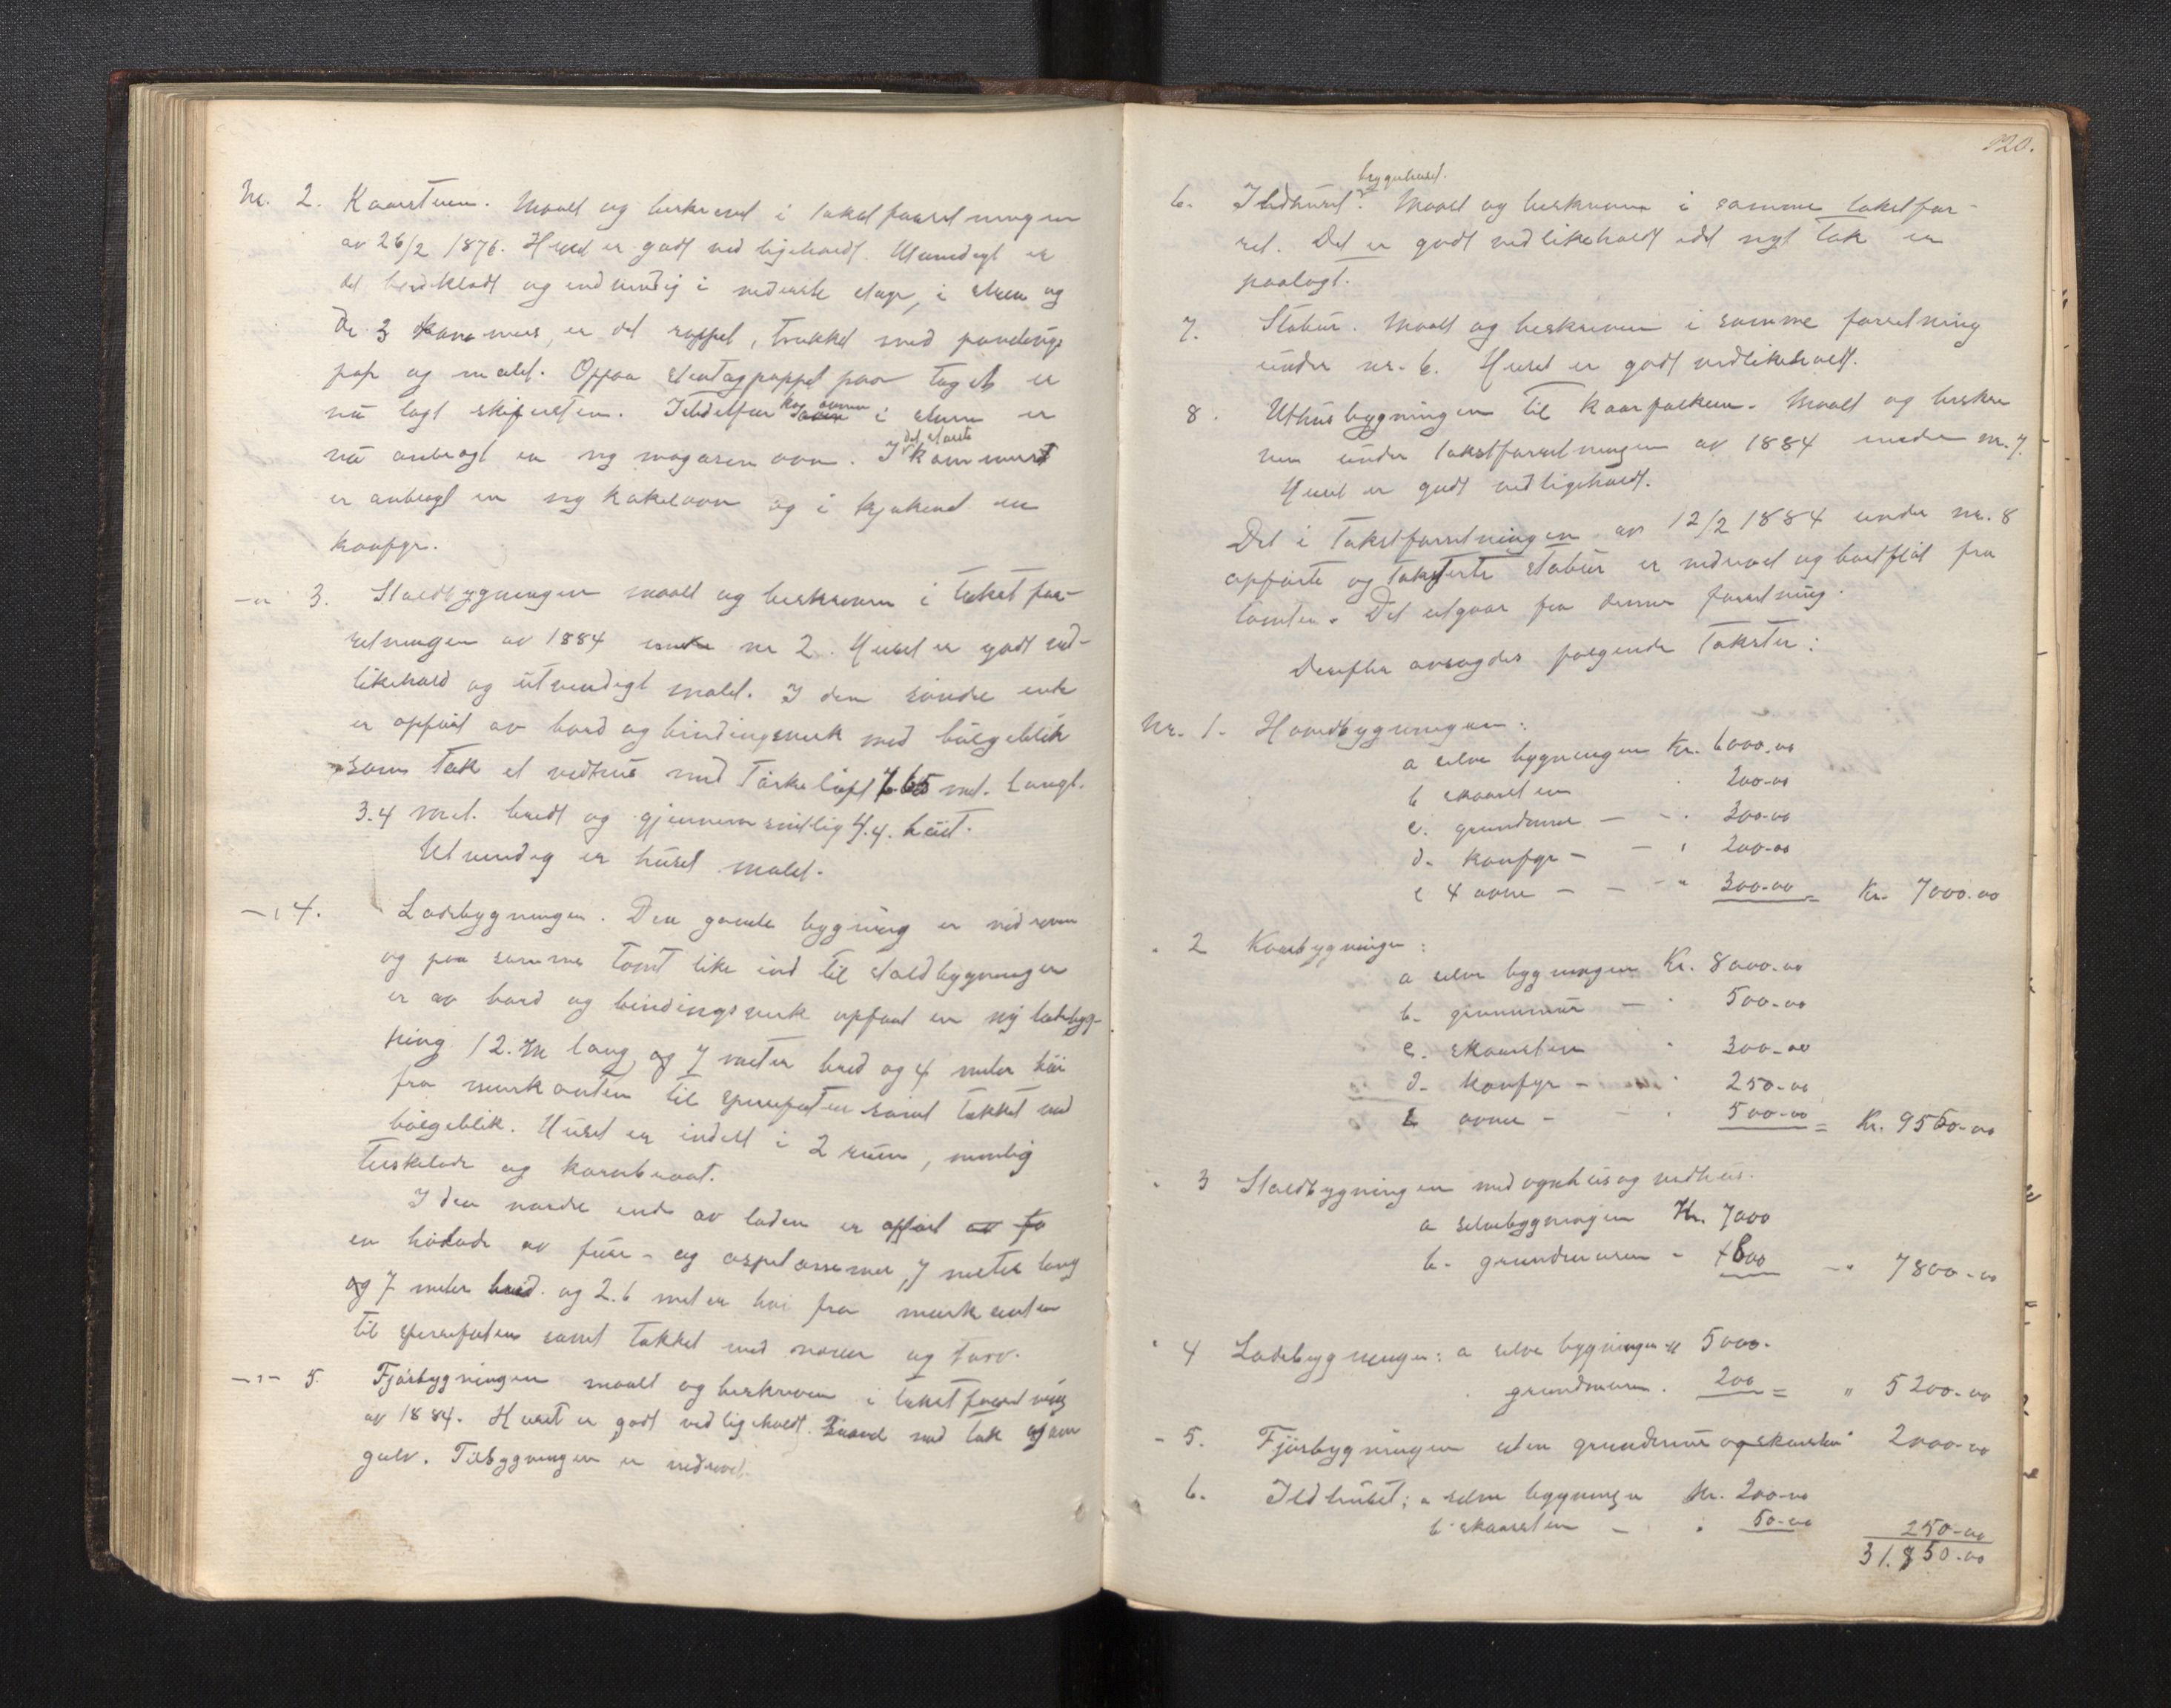 Nr. 2. Kaarstuen. Maalt og beskrevet i takstforretningen
av 26/2 1876. Huset er godt vedligeholdt. Utvendigt er
det bordklædt og indvendig i nederste etage, i stuen og
De 3 kammers, er det pappet, trukket med pandings
pap og malet. Oppaa stentagpappet paa taget er
nu lagt skifersten. Istedetfor kogeovnen i stuen er
nu anbragt en ny magasinovn. I det største kammers
er anbragt en ny kakelovn og i kjøkenet en
komfyr.
-"- 3. Staldbygningen maalt og beskreven i takstfor-
retningen av 1884 under nr 2. Huset er godt ved-
likehold og utvendigt malet. I den søndre ende
er opført av bord og bindingsverk med bølgeblik
som tak et vedhus med tørkeloft 7.65 met. langt.
3.4 met. bredt og gjennemsnitlig 4.4. høit.
Utvendig er huset malet.
-"- 4. Ladebygningen. Den gamle bygning er nedreven
og paa samme tomt like ind til staldbygningen
er av bord og bindingsverk opført en ny ladebyg-
ning 12. m lang og 7 meter bred og 4 meter høi
fra murkanten til sperrefoten samt tækket med
bølgeblik. Huset er indelt i 2 rum, nemlig
træskelade og kornbraat.
I den nordre ende av laden er opført av to
en hølade av furu- og ospetømmer, 7 meter lang
og 7 meter bred og 2.6 meter høi fra murkanten
til sperrefoten samt tækket med næver og torv.
-"- 5. Fjøsbygningen maalt og beskreven i takstforretning
av 1884. Huset er godt vedligeholdt. Saavel med tak som
gulv. Tilbyggningen er nedrevet.
120.
bryggehuset.
6. Ildhuset. Maalt og beskreven i samme takstfor-
ret. Det er godt vedlikeholdt idet nyt tak er
paalagt.
7. Stabur. Maalt og beskreven i samme forretning
under nr. 6. Huset er godt vedlikeholdt.
8. Uthusbygningen til kaarfolkene. Maalt og beskre
ven under takstforretningen av 1884 under nr. 7.
Huset er godt vedligeholdt.
Det i Takstforretningen av 12/2 1884 under nr. 8
opførte og taksterte stabur er nedrevet og bortflyt fra
tomten. Det utgaar fra denne forretning.
Derefter avsagdes følgende Takster:
Nr. 1. Hovedbygningen:
a selve bygningen Kr. 6000.00
b skorsten 200.00
c. grundmur - - . 300.00
d. komfyr - - . 200.00
e 4 ovne - - - " 300.00 = Kr. 7000.00
" 2 Kaarbygningen:
a selve bygningen Kr. 8000.00
b. grunnmur - . 500.00
c. skorsten . 300.00
d. komfyr - . 250.00
e ovne - - . 500.00 = Kr. 9550.00
" 3 Staldbygningen med vognhus og vedhus.
a selve bygningen Kr. 7000
b. grundmuren - 800 - " 7800.00
" 4 Ladebygningen: a selve bygningen Kr 5000.
grundmuren. 200 = " 5200.00
- 5. Fjøsbygningen uten grundmur og skorsten " 2000.00
6. Ildhuset; a selve bygningen Kr. 200.00
b skorsten - . 50.00 250.00
31.850.00